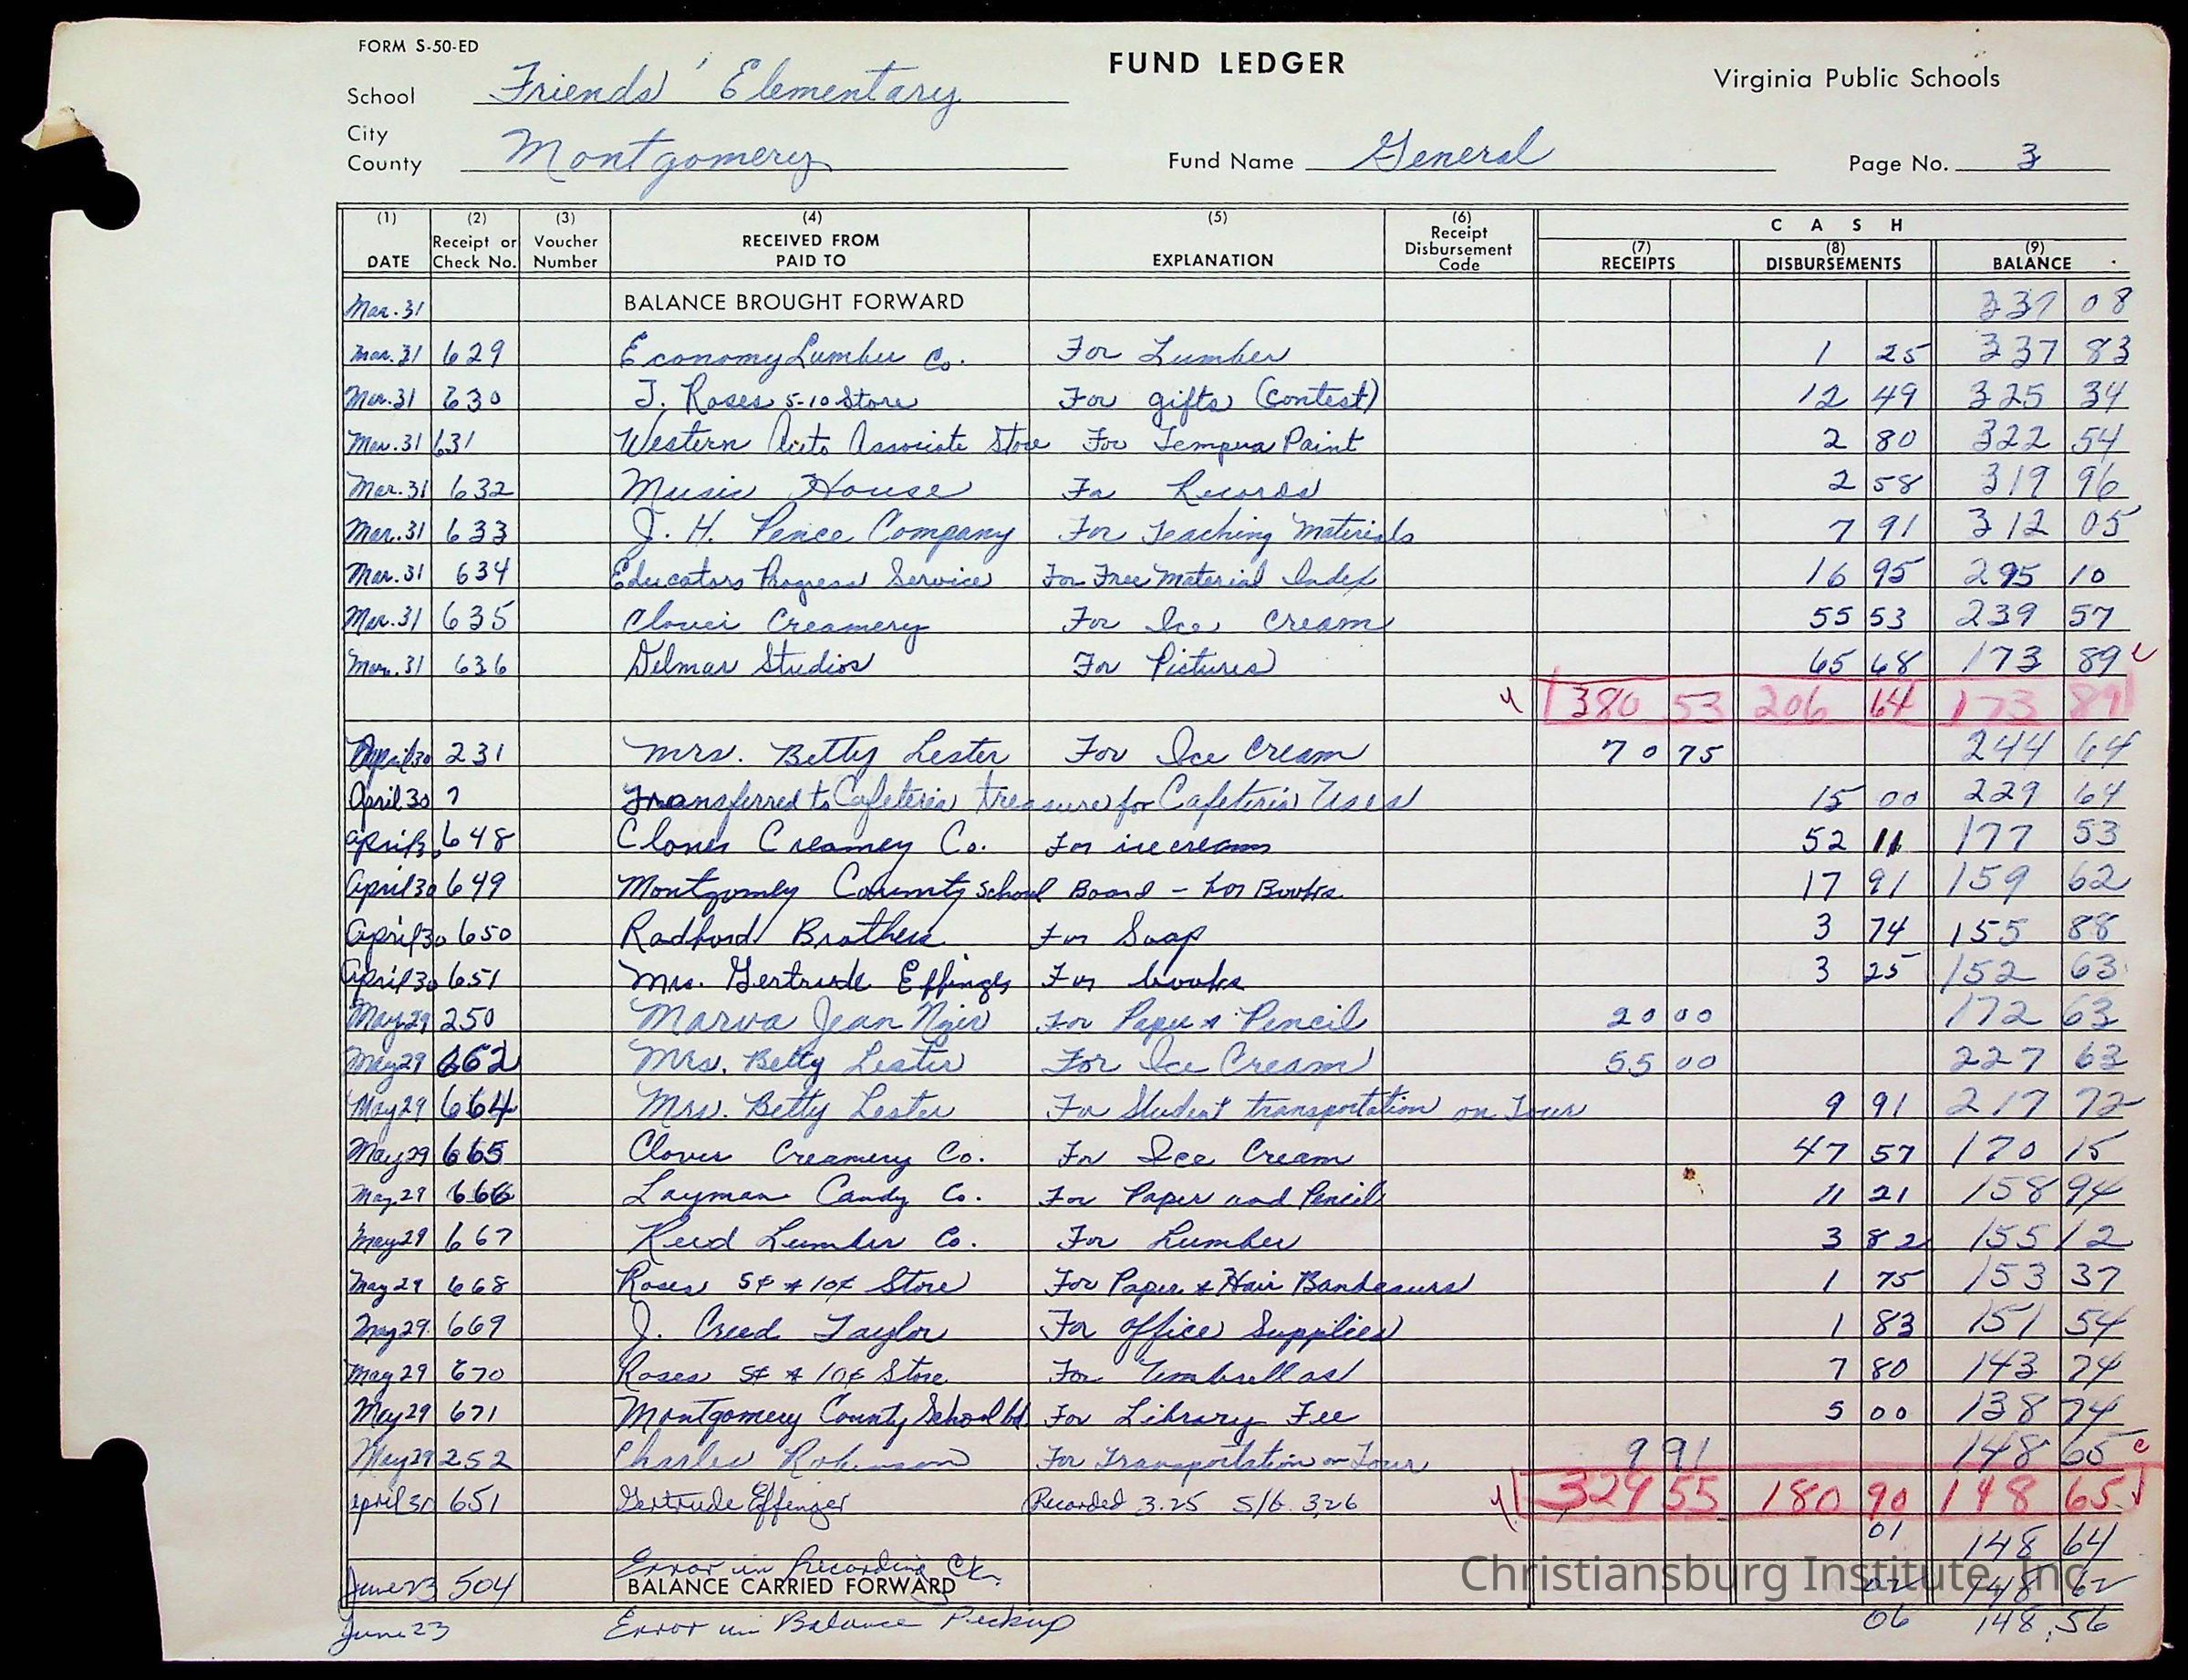 FORM S-50-ED
FUND LEDGER
Virginia Public Schools
School Friends' Elementary
City
County Montgomery
Fund Name General
Page No. 3
(1) DATE (2) Receipt or Check No. (3) Voucher Number (4) RECEIVED FROM PAID TO (5) EXPLANATION (6) Receipt Disbursement Code CASH (7) RECEIPTS (8) DISBURSEMENTS (9) BALANCE
Mar. 31 BALANCE BROUGHT FORWARD 337 08
Mar. 31 629 Economy Lumber Co. For Lumber 1 25 337 83
Mar. 31 630 J. Roses 5-10 Store For gifts (contest) 12 49 325 34
Mar. 31 631 Western Auto Associate Store For Tempera Paint 2 80 322 54
Mar. 31 632 Music House For Records 2 58 319 96
Mar. 31 633 J. H. Pence Company For Teaching Materials 7 91 312 05
Mar. 31 634 Educators Progress Service For Free Material Index 16 95 295 10
Mar. 31 635 Clover Creamery For Ice Cream 55 53 239 57
Mar. 31 636 Delmar Studios For Pictures 65 68 173 89
380 53 206 64 173 89
April 30 231 Mrs. Betty Lester For Ice Cream 70 75 244 64
April 30 ? Transferred to Cafeteria treasure for Cafeteria Uses 15 00 229 64
April 30 648 Clover Creamey Co. For ice cream 52 11 177 53
April 30 649 Montgomery County School Board - for Books 17 91 159 62
April 30 650 Radford Brothers For Soap 3 74 155 88
April 30 651 Mrs. Gertrude Effinger For books 3 25 152 63
May 29 250 Marva Jean For Paper & Pencil 20 00 172 63
May 29 662 Mrs. Betty Lester For Ice Cream 55 00 227 63
May 29 664 Mrs. Betty Lester For Student transportation on Tour 9 91 217 72
May 29 665 Clover Creamery Co. For Ice Cream 47 57 170 15
May 29 666 Layman Candy Co. For Paper and Pencil 11 21 158 94
May 29 667 Reed Lumber Co. For Lumber 3 82 155 12
May 29 668 Roses 5¢ & 10¢ Store For Paper & Hair Bandeaurs 1 75 153 37
May 29 669 J. Creed Taylor For Office Supplies 1 83 151 54
May 29 670 Roses 5¢ & 10¢ Store For Umbrellas 7 80 143 74
May 29 671 Montgomery County School bd. For Library Fee 5 00 138 74
May 29 252 Charles Robinson For Transportation on Tour 9 91 148 65
329 55 180 90 148 65
April 30 651 Gertrude Effinger Recorded 3.25 S/b. 3.26 01 148 64
June 23 504 Error in Recording Ck. 02 148 62
BALANCE CARRIED FORWARD
June 23 Error in Balance Pickup 06 148.56
Christiansburg Institute, Inc